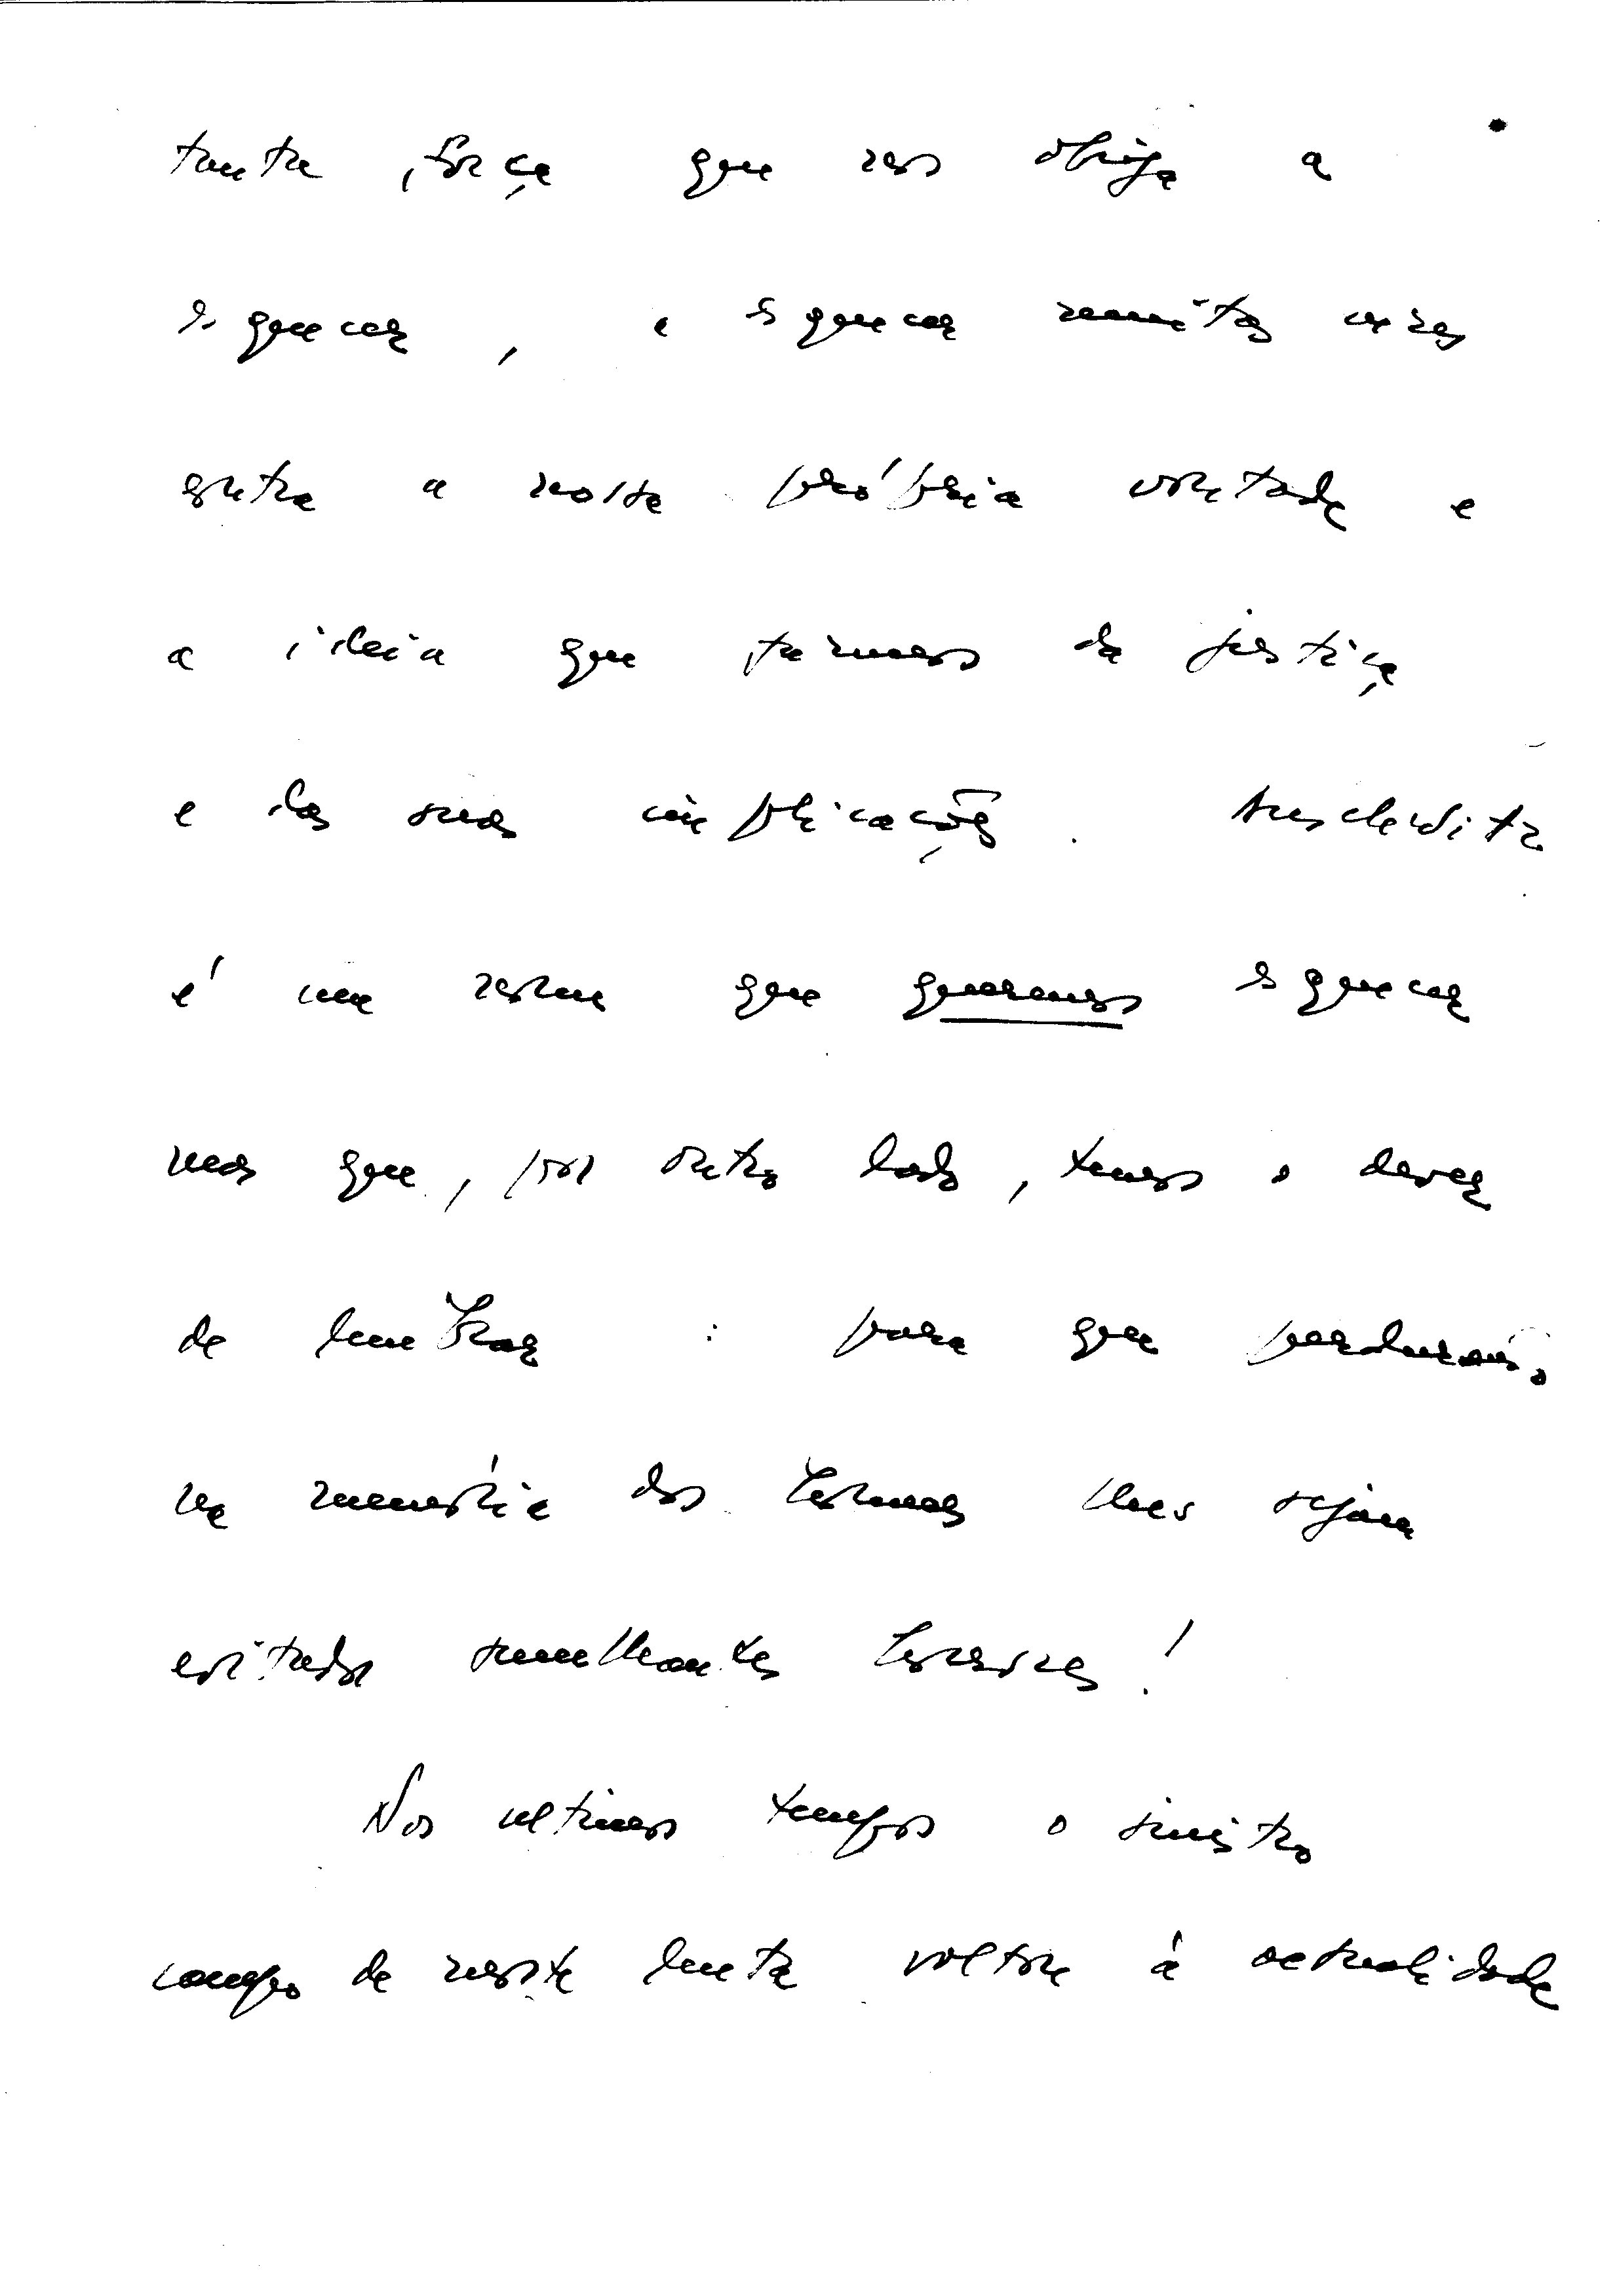 tanta força que nos obriga a
esquecer, e esquecer muitas vezes
contra a nossa própria vontade e
a ideia que temos da justiça
e das suas implicações. Auschwitz
é um nome que queremos esquecer
mas que, por outro lado, temos o dever
de lembrar: para que perdurando
na memória dos homens lhes sejam
evitados semelhantes horrores!
Nos ultimos tempos o sinistro
campo de morte lenta voltou à actualidade